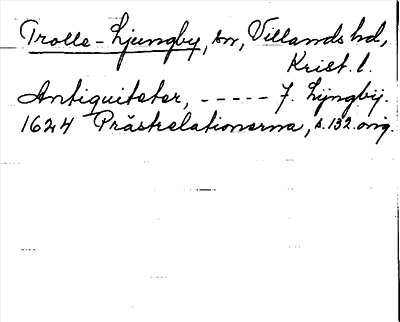 Trolle-Ljungby, sn, Villands hd,
Krist. l.
Antiquiteter, ----- J. Lyngbij.
1624 Prästrelationerna, s. 132 orig.